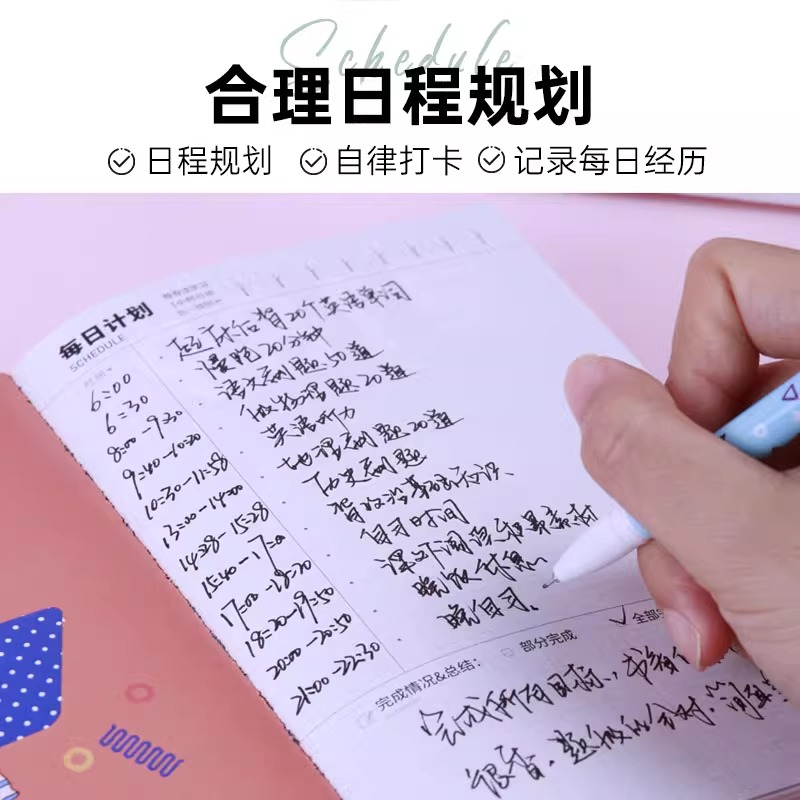 Schedule
合理日程规划
日程规划 自律打卡 记录每日经历
每日计划
SCHEDULE
时间
6:00 起床后背20个英语单词
6:30 慢跑20分钟
8:00-9:30 语文刷题50道
9:40-10:20 做物理题20道
10:30-11:58 英语听力
13:00-14:00 地理刷题20道
14:28-15:28 历史刷题
15:40-17:00 背政治基础知识、
17:00-18:20 自习时间
18:20-19:50 课外阅读和累素材
20:00-20:50 晚饭休息
21:00-22:30 晚自习。
完成情况&总结: 部分完成 全部
完成所有目标，
很香、题做的全对、